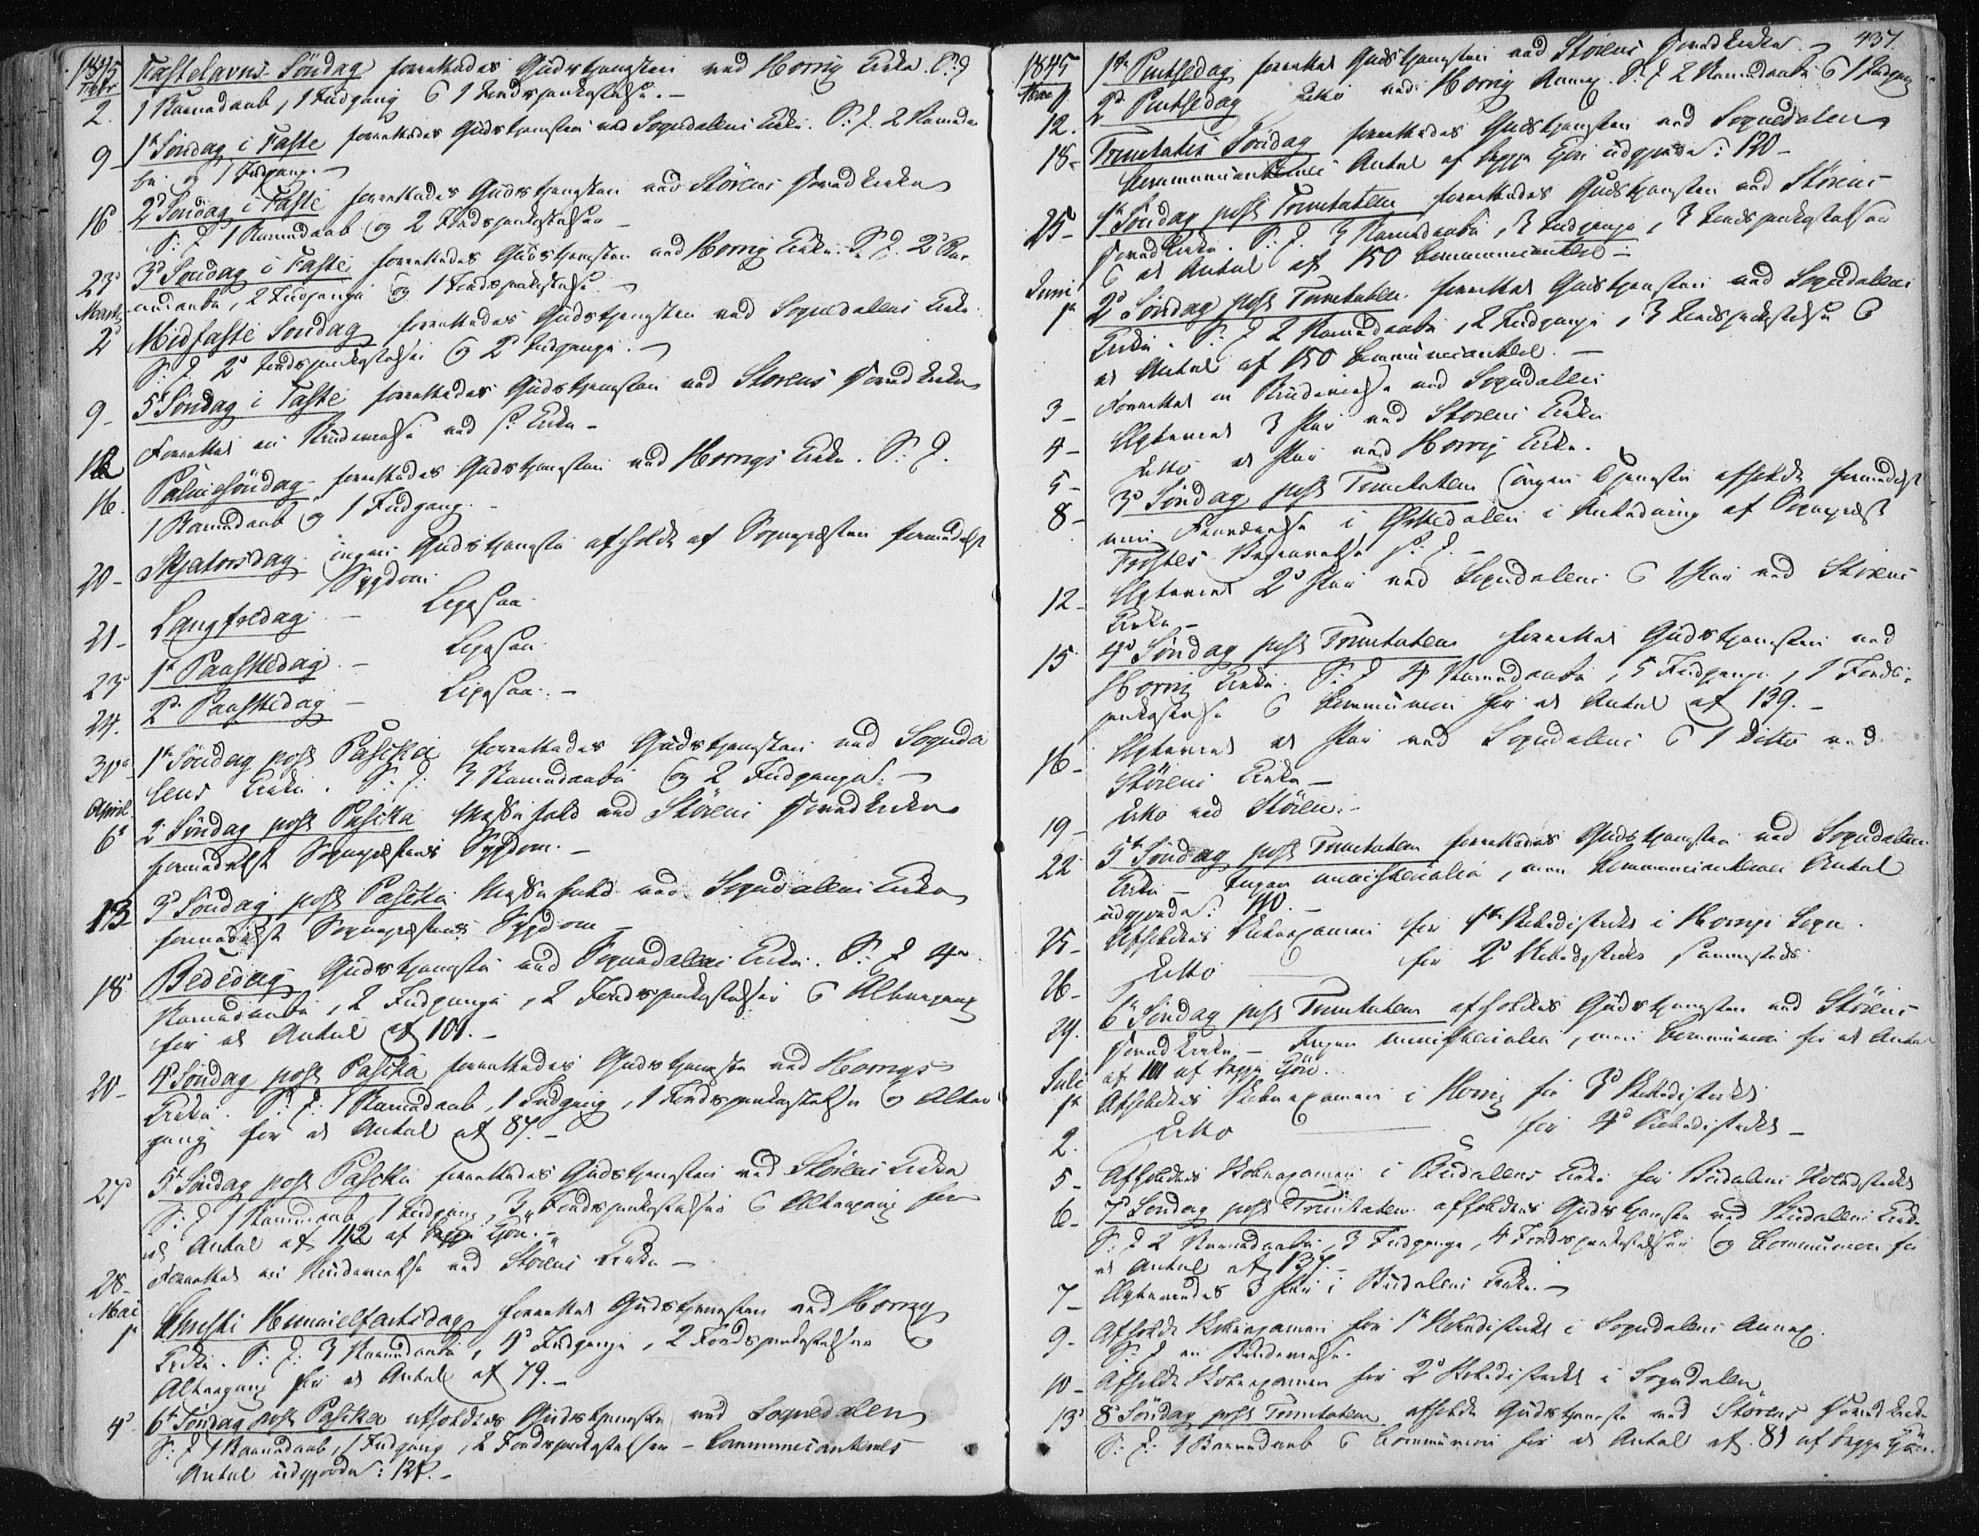 1845
Febr
2. Fastelavns Söndag forrettedes Gudstjenesten ved Horrig Kirke S: J
1 Barnedaab, 1 Indgang & 1 Jordspaakastelse. –
9 – 1ste Söndag i Faste forrettedes Gudstjenesten ved Soknedalens Kirke. S: J. 2 Barneda
be og 1 Indgang. –
16 2d Söndag i Faste forrettedes Gudstjenesten ved Störens Hovedkirke
S: J 1 Barnedaab og 2 Jordspaakastelser –
23 3d Söndag i Faste forrettedes Gudstjenesten ved Horrig Kirke. S. J. 2 Bar
nedaabe, 2 Indgange og 1 Jordspaakastelse. –
Marts
2d Midfaste Söndag forrettedes Gudstjenesten ved Soknedalens Kirke.
S: J. 2 Jordspaakastelser og 2 Indgange. –
9 – 5te Söndag i Faste forrettedes Gudstjenesten ved Störens Hovedkirke
12 Forrettet en Brudevielse ved s. Kirke –
16. Palmesöndag forrettedes Gudstjenesten ved Horrigs Kirke. S: J.
1 Barnedaab og 1 Indgang. –
20 – Skjærtorsdag ingen Gudstjeneste afholdt af Sognepræsten formedelst
Sygdom
21 – Langfredag – Ligesaa
23 1ste Paaskedag – Ligesaa
24. 2d Paaskedag – Ligesaa. –
30te 1ste Söndag post Pascha forrettedes Gudstjenesten ved Sogneda
lens Kirke. S: J: 3 Barnedaabe og 2 Indgange. –
April
6te 2 Söndag post Pascha Messefald ved Störens Hovedkirke
formedelst Sognepræstens Sygdom. –
13 3d Söndag post Pascha Messefald ved Sognedalens Kirke
formedelst Sognepræstens Sygdom –
18 Bededag Gudstjeneste ved Sognedalens Kirke. S: J 4
Barnedaabe, 2 Indgange, 2 Jordspaakastelser & Altergang
for et Antal af 101. –
20 – 4de Söndag post Pascha forrettedes Gudstjeneste ved Horrigs
Kirke. S: J: 1 Barnedaab, 1 Indgang, 1 Jordspaakastelse og Alter
gang for et Antal af 87. –
27 5te Söndag post Pascha forrettedes Gudstjenesten ved Störens Kirke
S: J 1 Barnedaab, 1 Indgang, 3 Jordspaakastelser & Altergang for
et Antal af 112 af begge Kjön. –
28 – Forrettet en Brudevielse ved Störens Kirke –
Mai
1ste Christi Himmelfartsdag forrettet Gudstjenesten ved Horrig
Kirke. S: J: 3 Barnedaabe, 4 Indgange, 2 Jordspaakastelser &
Altergang for et Antal af 79. –
4de 6te Söndag post Pascha afholdtes Gudstjeneste ved Sognedalen
S: J 1 Barnedaab, 1 Indgang, 2 Jordspaakastelser – Communicanternes
Antal udgjorde: 124. –
437.
1845
Mai
1ste Pintsedag forrettet Gudstjenesten ved Störens Hovedkirke. –
12. 2d Pintsedag Ditto ved Horrig Annex. S: J. 2 Barnedaabe & 1 Indgang
18 – Trinitatis Söndag forrettedes Gudstjenesten ved Sognedalen
Communicanternes Antal af begge Kjön udgjorde: 120 –
25 – 1ste Söndag post Trinitatem forrettedes Gudstjenesten ved Störens
Hovedkirke. S: J. 3 Barnedaabe, 3 Indgange, 3 Jordspaakastelser
& et Antal af 150 Communicanter –
Juni
1ste 2d Söndag post Trinitatem forrettet Gudstjenesten ved Sognedalens
Kirke. S: J 2 Barnedaabe, 2 Indgange, 3 Jordspaakastelser &
et Antal af 150 Communicanter. –
3 – Forrettet en Brudevielse ved Sognedalen
4 – Ægteviet 3 Par ved Störens Kirke
5 – Ditto et Par ved Horrig Kirke.
8 – 3d Söndag post Trinitatem (ingen Tjeneste afholdt formedelst
min Fraværelse i Østerdalen i Anledning af Sognepræst
Frostes Begravelse S: J. –
12 – Ægteviet 2 Par ved Sognedalens & 1 Par ved Störens
Kirke –
15 4de Söndag post Trinitatem forrettet Gudstjenesten ved
Horrig Kirke. S: J 4 Barnedaabe, 5 Indgange, 1 Jords-
paakastelse & Communion for et Antal af 139. –
16 – Ægteviet et Par ved Sognedalens & 1 Ditto ved
Störens Kirke –
19 – Ditto ved Stören. –
22 5te Söndag post Trinitatem forrettedes Gudstjenesten ved Sognedalens
Kirke – Ingen ministerialia, men Communicanternes Antal
udgjorde: 110. –
25 – Afholdtes Skoleexamen for 1ste Skoledistrict i Horrigs Sogn.
26 – Ditto for 2 Skoledistricts sammesteds
29. 6te Söndag post Trinitatem afholdtes Gudstjenesten ved Störens
Hovedkirke – Ingen ministerialia, men Communion for et Antal
af 101 af begge Kjön.
Juli
1ste Afholdtes Skoleexamen i Horrig for 3d Skoledistrict
2. Ditto for 4de Skoledistrict –
5 – Afholdtes Skoleexamen i Budalens Kirke for Budalens Skoledistrict
6 – 7de Söndag post Trinitatem afholdtes Gudstjenesten ved Budalens Kirke
S: J 2 Barnedaabe, 3 Indgange, 4 Jordspaakastelser og Communion for
et Antal af 137. –
7 – Ægteviedes 3 Par i Budalens Kirke. –
9 – Afholdt Skoleexamen for 1ste Skoledistrict i Sognedalens Annex.
S: J en Brudevielse.
10 – Afholdt Skoleexamen for 2d Skoledistrict i Sognedalen
13 8de Söndag post Trinitatem afholdt Gudstjeneste ved Störens Hovedkirke
S: J: 1 Barnedaab & Communion for et Antal af 81 af begge Kjön.